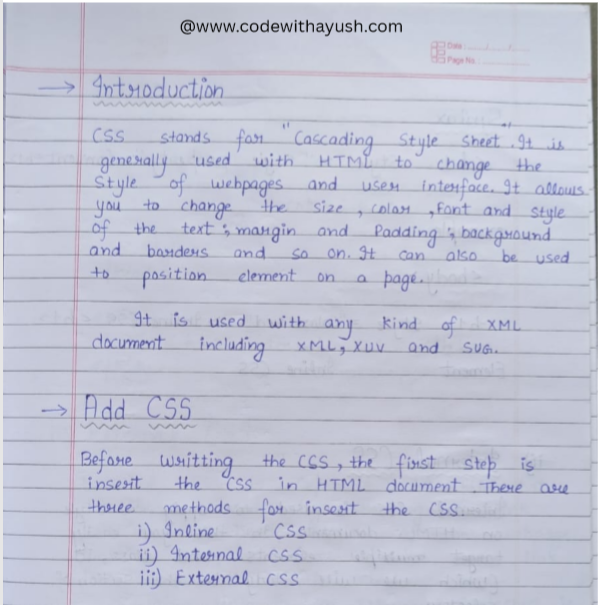 @www.codewithayush.com
Date :
Page No :
→ Introduction
CSS stands for "Cascading Style Sheet". It is
generally used with HTML to change the
Style of webpages and user interface. It allows
you to change the size, color, font and style
of the text; margin and Padding; background
and borders and so on. It can also be used
to position element on a page.
It is used with any kind of XML
document including XML, XUV and SUG.
→ Add CSS
Before writting the CSS, the first step is
insert the CSS in HTML document. There are
three methods for insert the CSS.
i) Inline CSS
ii) Internal CSS
iii) External CSS